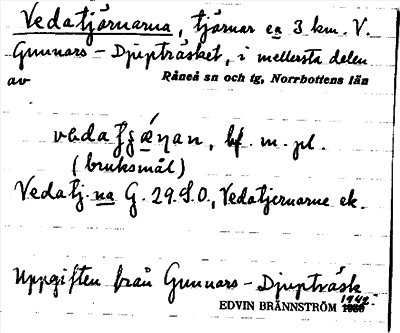 Vedatjärnarna, tjärnar ca 3 km. V.
Gunnars-Djupträsket, i mellersta delen
av Råneå sn och tg, Norrbottens län
bf. m. pl.
(bruksmål)
Vedatj.na G. 29.S.O., Vedatjernarne ek.
Uppgiften från Gunnars-Djupträsk
EDVIN BRÄNNSTRÖM 1942.